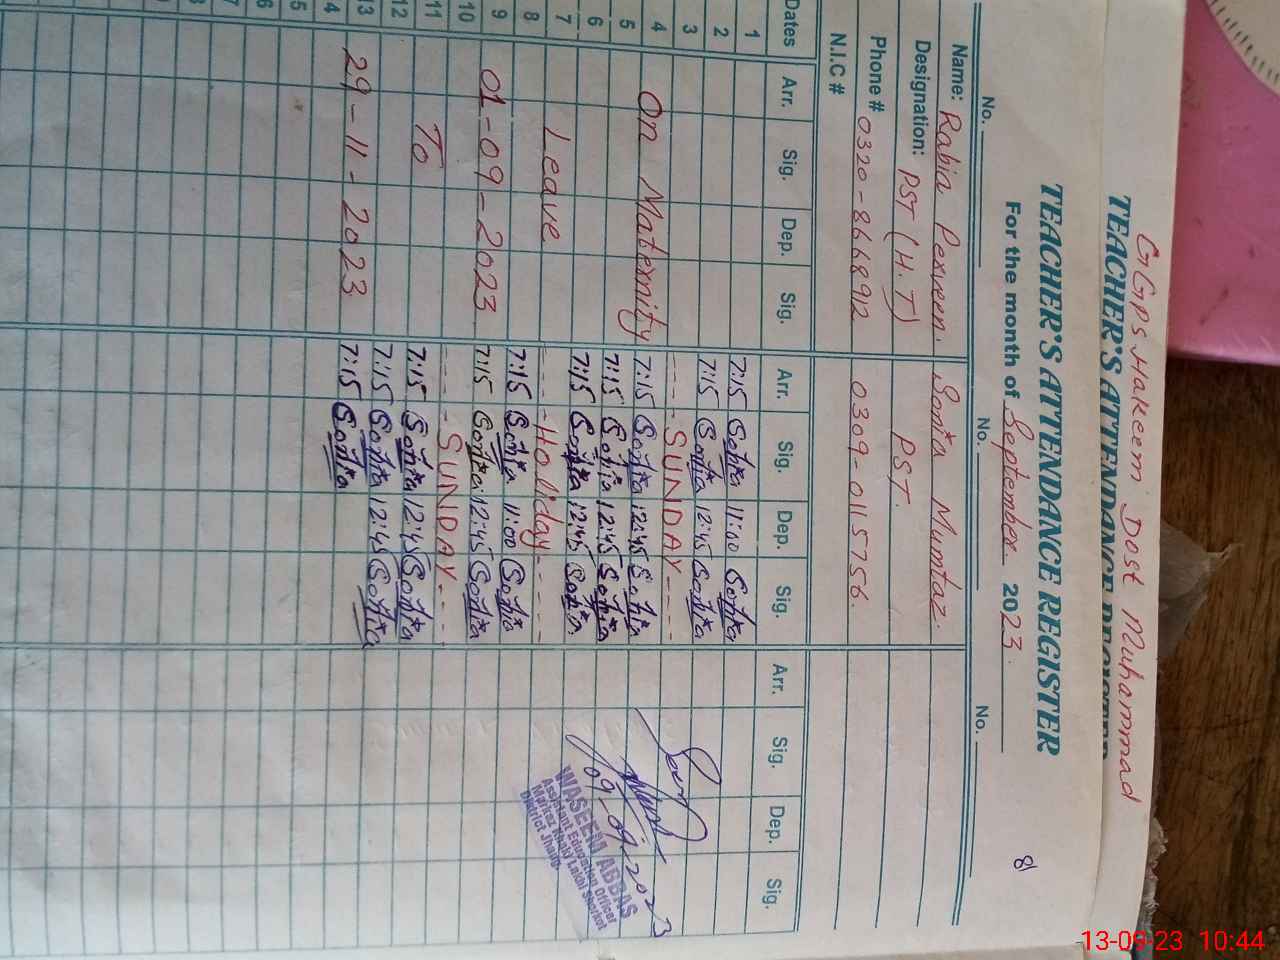 GGPS Hakeem Dost Muhammad
TEACHER'S ATTENDANCE REGISTER
TEACHER'S ATTENDANCE REGISTER
For the month of September 2023.
8)
No. No. No.
Name: Rabia Perveen. Sonia Mumtaz.
Designation: PST (H.T) PST.
Phone # 0320-8668912 0309-0115756.
N.I.C #
Dates Arr. Sig. Dep. Sig. Arr. Sig. Dep. Sig. Arr. Sig. Dep. Sig.
1 7:15 Sonia 11:00 Sonia
2 7:15 Sonia 12:45 Sonia
3 ---- SUNDAY ----
4 On Maternity 7:15 Sonia 12:45 Sonia
5 7:15 Sonia 12:45 Sonia
6 7:15 Sonia 12:45 Sonia
7 Leave ---- Holiday ----
8 7:15 Sonia 11:00 Sonia
9 01-09-2023 7:15 Sonia 12:45 Sonia
10 ---- SUNDAY ----
11 To 7:15 Sonia 12:45 Sonia
12 7:15 Sonia 12:45 Sonia
13 29-11-2023 7:15 Sonia
4
5
6
7
8
3
09-09-2023
WASEEM ABBAS
Assistant Education Officer
Markaz Kaky
District Jhang.
13-09-23 10:44